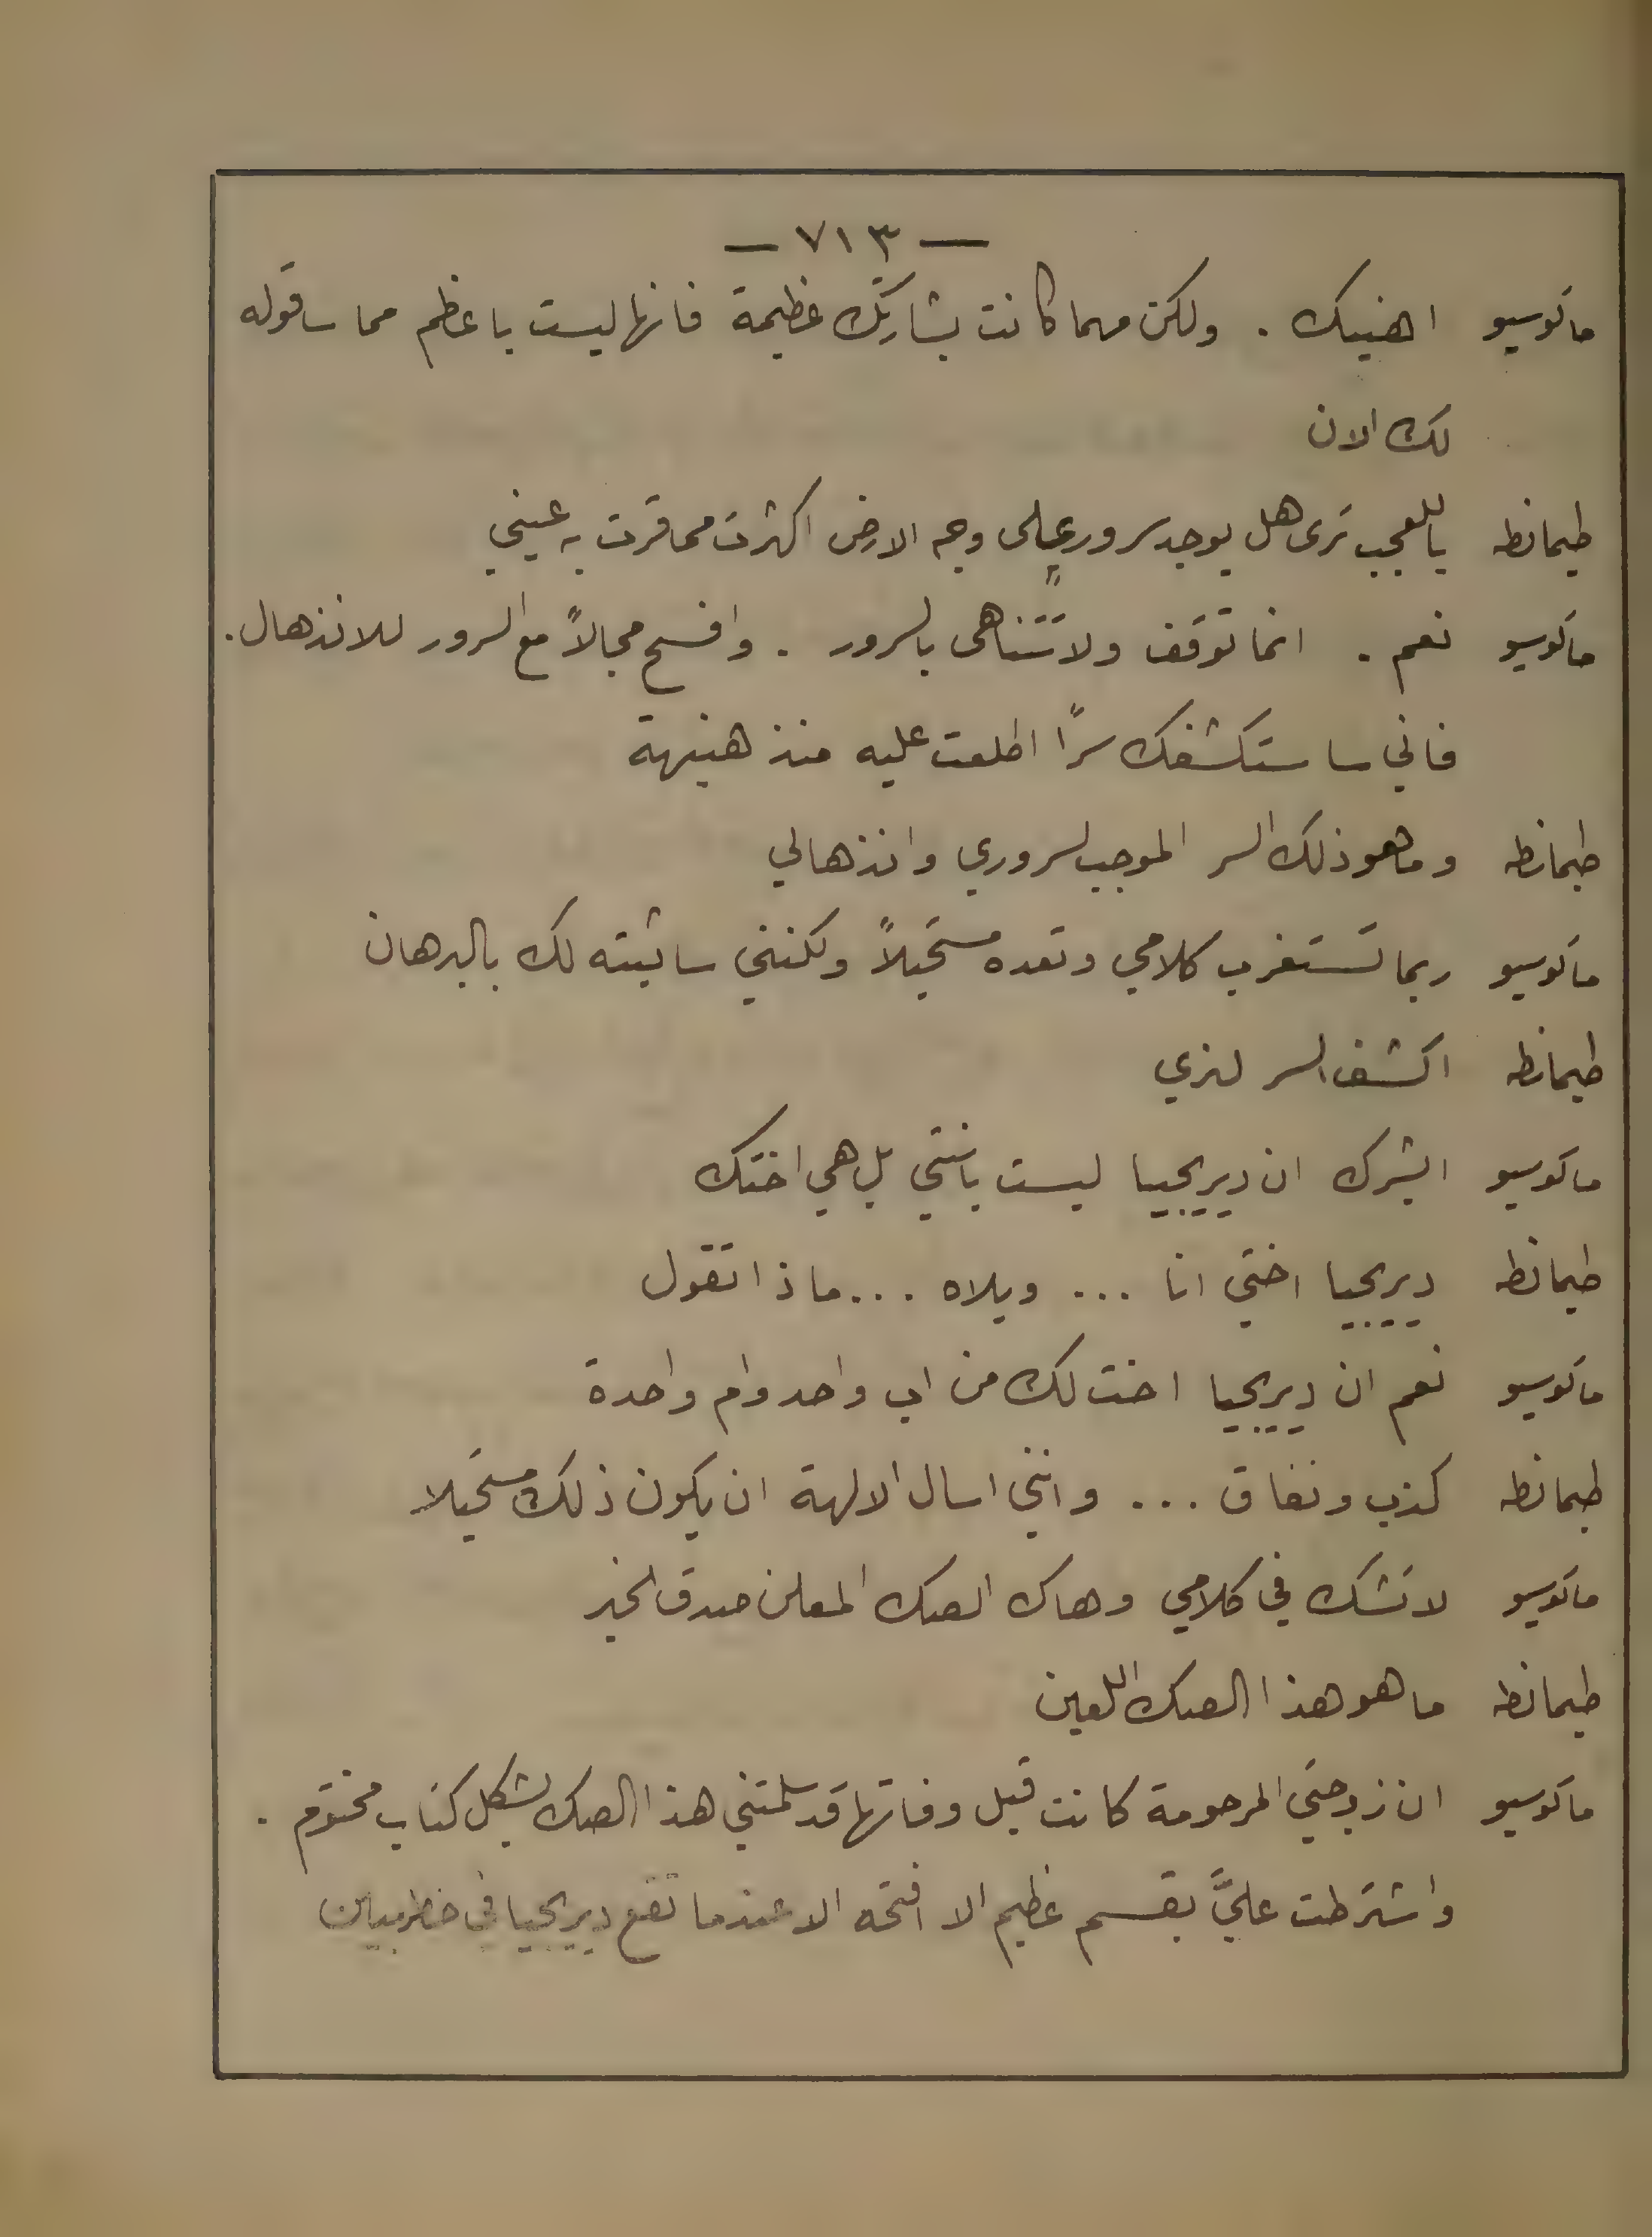 — ٧١٣ —
ماتوسيو اهنيك . ولكن مهما كانت بشارتك عظيمة فانها ليست باعظم مما ساقوله
لك الان
طيمانطه ياللعجب ترى هل يوجد سرور على وجه الارض اكثر مما قرت به عيني
ماتوسيو نعم . انما توقف ولا تتناهى بالسرور . وافسح مجالاً مع السرور للانذهال .
فاني ساستكشفك سرًا اطلعت عليه منذ هنيهة
طيمانطه وما هو ذلك السر الموجب لسروري وانذهالي
ماتوسيو ربما تستغرب كلامي وتعده مستحيلاً ولكنني ساثبته لك بالبرهان
طيمانطه اكشف السر لنري
ماتوسيو ابشرك ان ديريجيا ليست بابنتي بل هي اختك
طيمانطه ديريجيا اختي انا ... ويلاه ... ماذا تقول
ماتوسيو نعم ان ديريجيا اخت لك من اب واحد وام واحدة
طيمانطه كذب ونفاق ... وانني اسال الالهة ان يكون ذلك مستحيلا
ماتوسيو لا تشك في كلامي وهاك الصك المعلن صدق الخبر
طيمانطه ما هو هذا الصك اللعين
ماتوسيو ان زوجتي المرحومة كانت قبل وفاتها قد سلمتني هذا الصك بشكل كتاب مختوم .
واشترطت عليَّ بقسم عظيم الا افتحه الا عندما تقع ديريجيا في خطر مبين